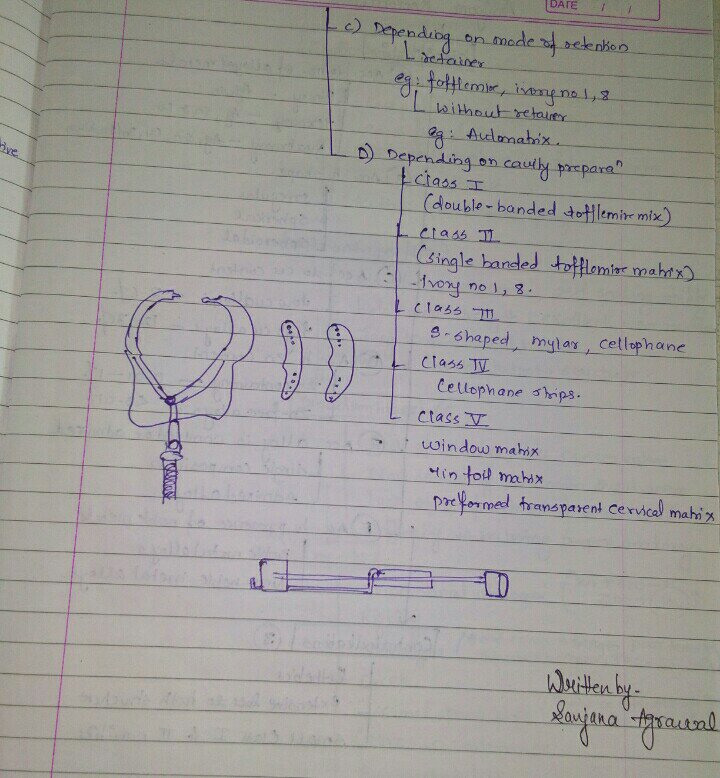 DATE / /
C) Depending on mode of retention
retainer
eg: tofflemire, ivory no 1, 8
without retainer
eg: Automatrix.
D) Depending on cavity preparaⁿ
Class I
(double-banded tofflemire mix)
class II
(single banded tofflemire matrix)
Ivory no 1, 8.
class III
S-shaped, mylar, cellophane
class IV
Cellophane strips.
class V
window matrix
tin foil matrix
preformed transparent cervical matrix
Written by-
Sanjana Agrawal